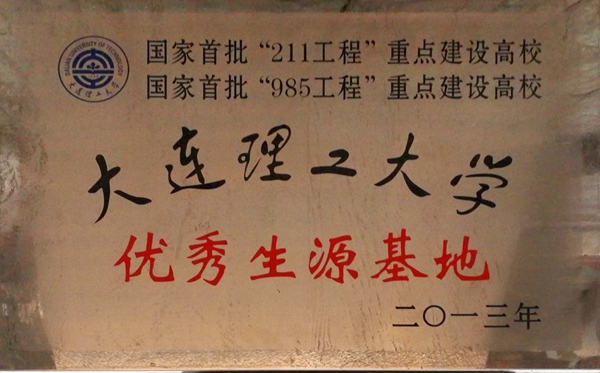 国家首批“211工程”重点建设高校
国家首批“985工程”重点建设高校
DALIAN UNIVERSITY OF TECHNOLOGY
大连理工大学
大连理工大学
优秀生源基地
二〇一三年